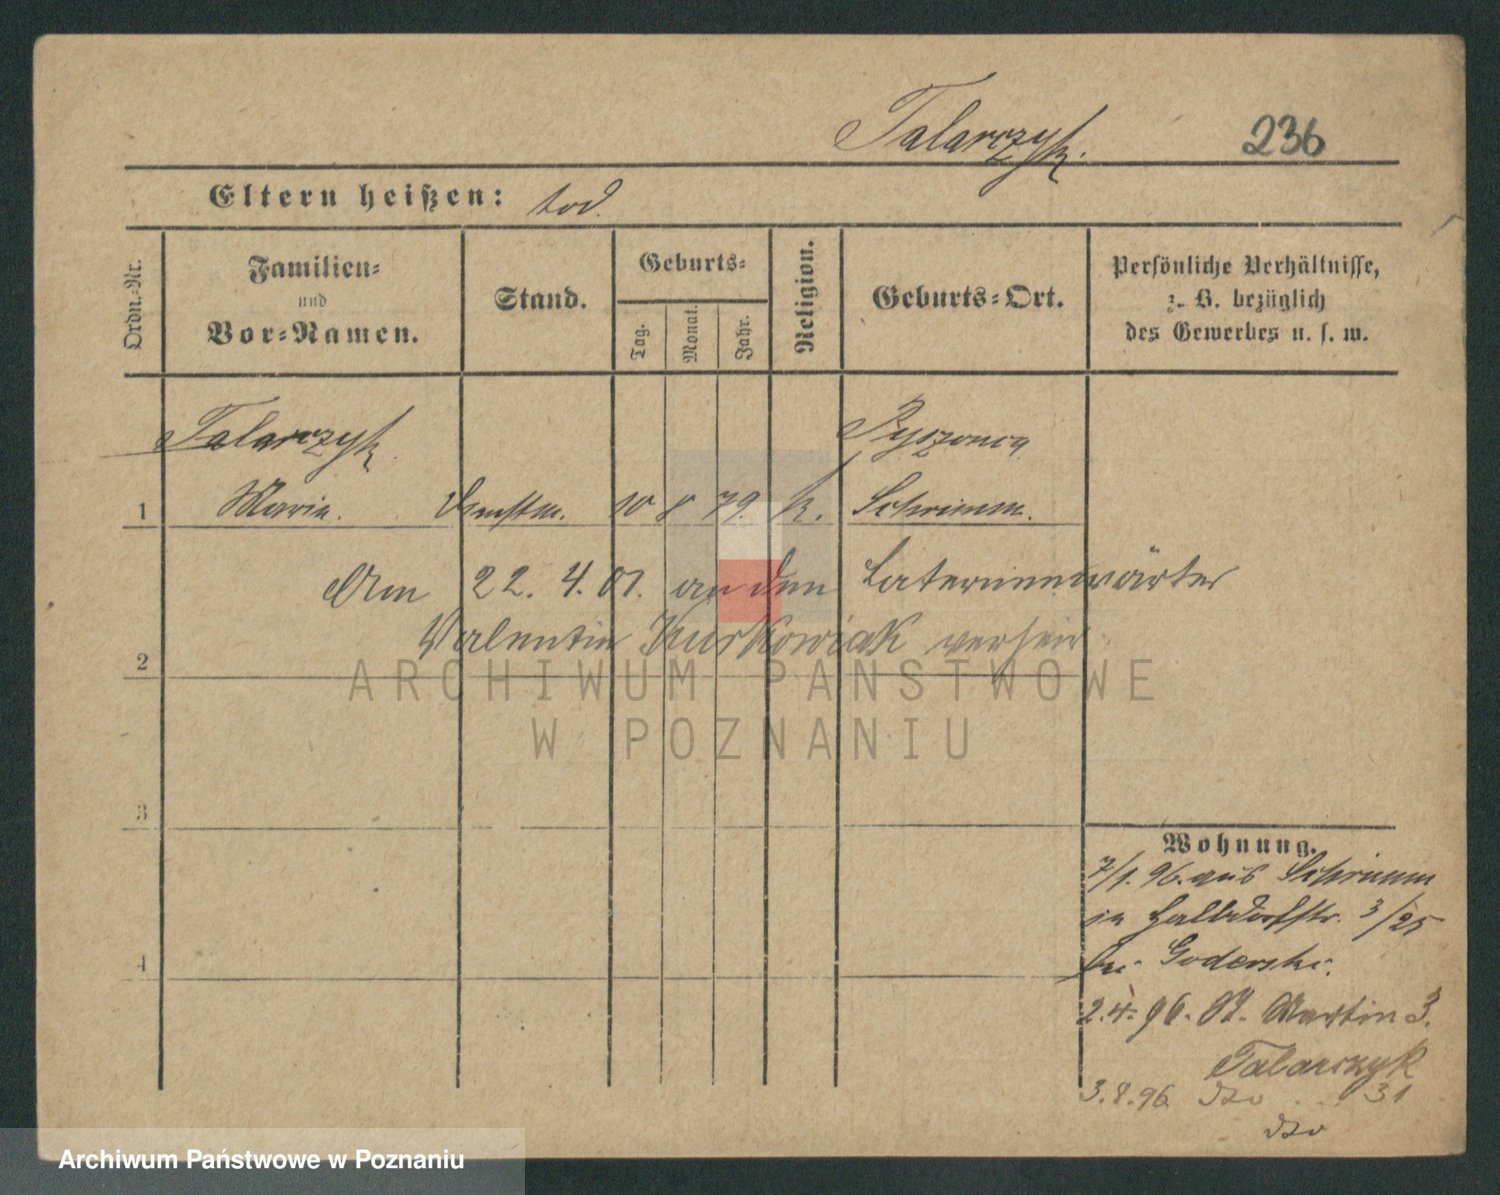 Talarczyk.
236
Eltern heißen: tod.
Ordn.-Nr.
Familien-
und
Vor-Namen.
Stand.
Geburts-
Tag.
Monat.
Jahr.
Religion.
Geburts-Ort.
Persönliche Verhältnisse,
z. B. bezüglich
des Gewerbes u. s. w.
Talarczyk
Pyszonca
1 Maria. Dienstm. 10 8 79. k. Schrimm.
Am 22. 4. 01. an den Laternenwärter
Valentin Kurkowiak verheir
2
ARCHIWUM PAŃSTWOWE
W POZNANIU
3
Wohnung.
7/1. 96. aus Schrimm
in Halbdorfstr. 3/25
bei Goderski.
4
2.4. 96. St. Martin 3.
Talarczyk
3.8.96. dto 31
dto
Archiwum Państwowe w Poznaniu